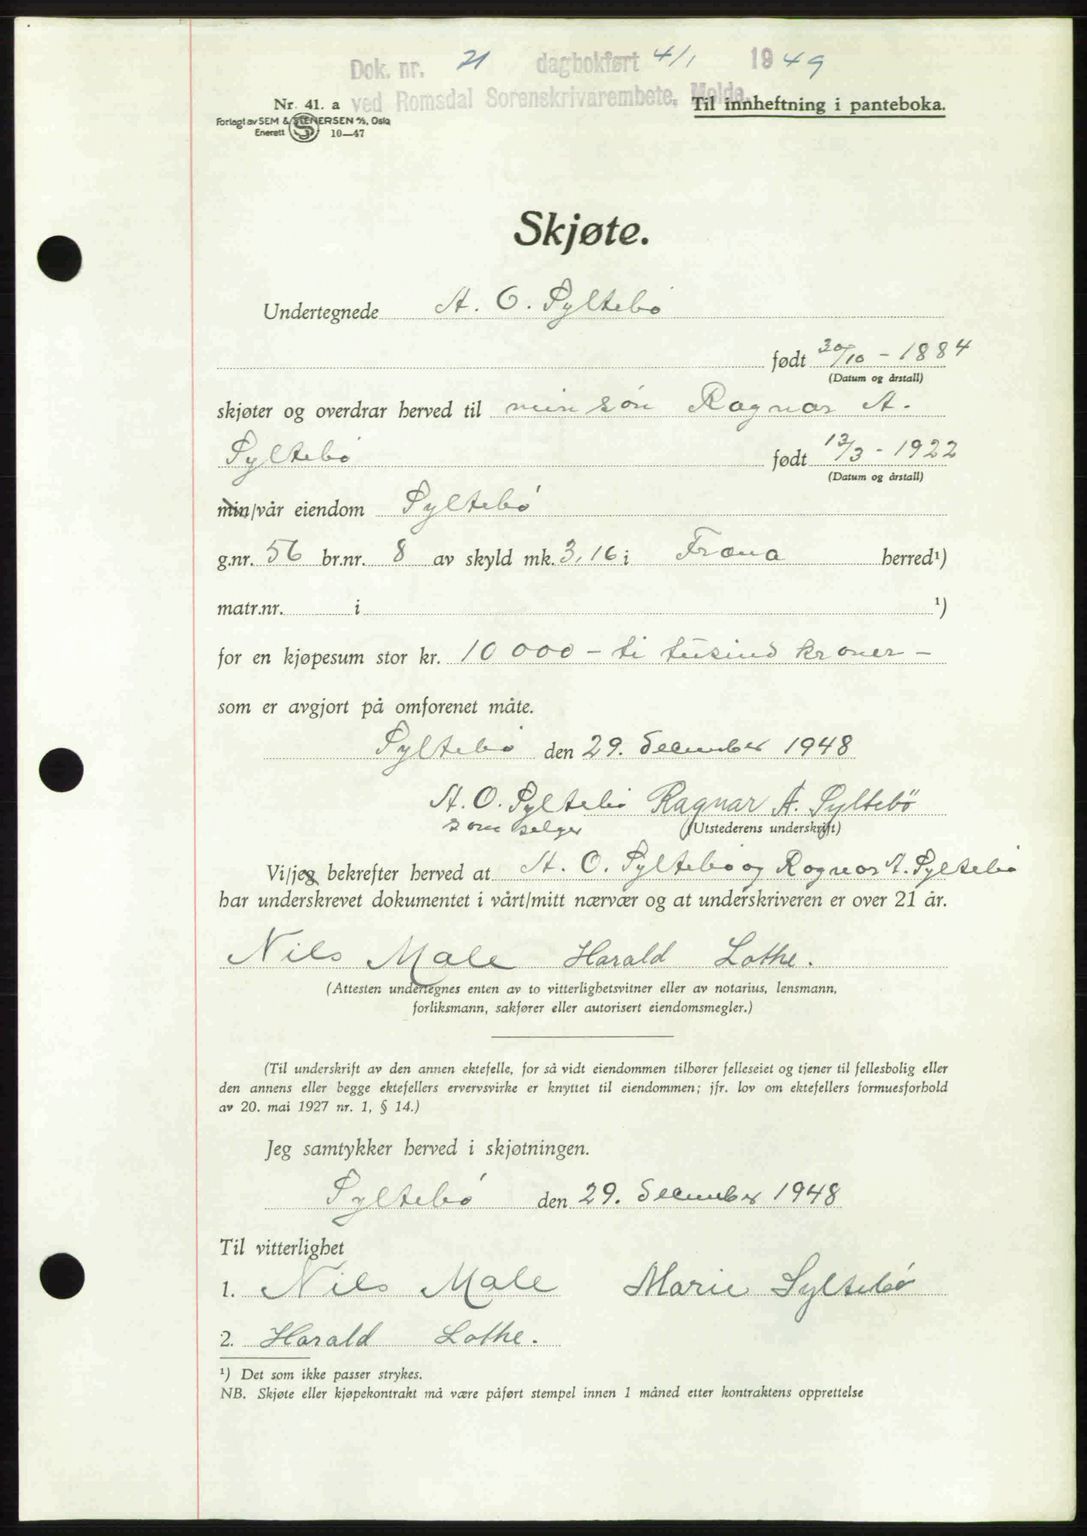 Dok. nr. 21 dagbokført 4/1 1949
ved Romsdal Sorenskrivarembete, Molde.
Nr. 41. a
Til innheftning i panteboka.
Forlagt av SEM & STENERSEN A/S, Oslo
Enerett S 10—47
Skjøte.
Undertegnede A. O. Syltebø
født 30/10 - 1884
(Datum og årstall)
skjøter og overdrar herved til min søn Ragnar A.
Syltebø født 13/3 - 1922
(Datum og årstall)
min/vår eiendom Syltebø
g.nr. 56 br.nr. 8 av skyld mk. 3,16 i Fræna herred¹)
matr.nr. i ¹)
for en kjøpesum stor kr. 10 000 - ti tusind kroner -
som er avgjort på omforenet måte.
Syltebø den 29. december 1948
A. O. Syltebø Ragnar A. Syltebø
som selger (Utstederens underskrift)
Vi/jeg bekrefter herved at A. O. Syltebø og Ragnar A. Syltebø
har underskrevet dokumentet i vårt/mitt nærvær og at underskriveren er over 21 år.
Nils Male Harald Lothe.
(Attesten undertegnes enten av to vitterlighetsvitner eller av notarius, lensmann,
forliksmann, sakfører eller autorisert eiendomsmegler.)
(Til underskrift av den annen ektefelle, for så vidt eiendommen tilhører felleseiet og tjener til fellesbolig eller
den annens eller begge ektefellers ervervsvirke er knyttet til eiendommen; jfr. lov om ektefellers formuesforhold
av 20. mai 1927 nr. 1, § 14.)
Jeg samtykker herved i skjøtningen.
Syltebø den 29. december 1948
Til vitterlighet
1. Nils Male Marie Syltebø
2. Harald Lothe.
¹) Det som ikke passer strykes.
NB. Skjøte eller kjøpekontrakt må være påført stempel innen 1 måned etter kontraktens opprettelse